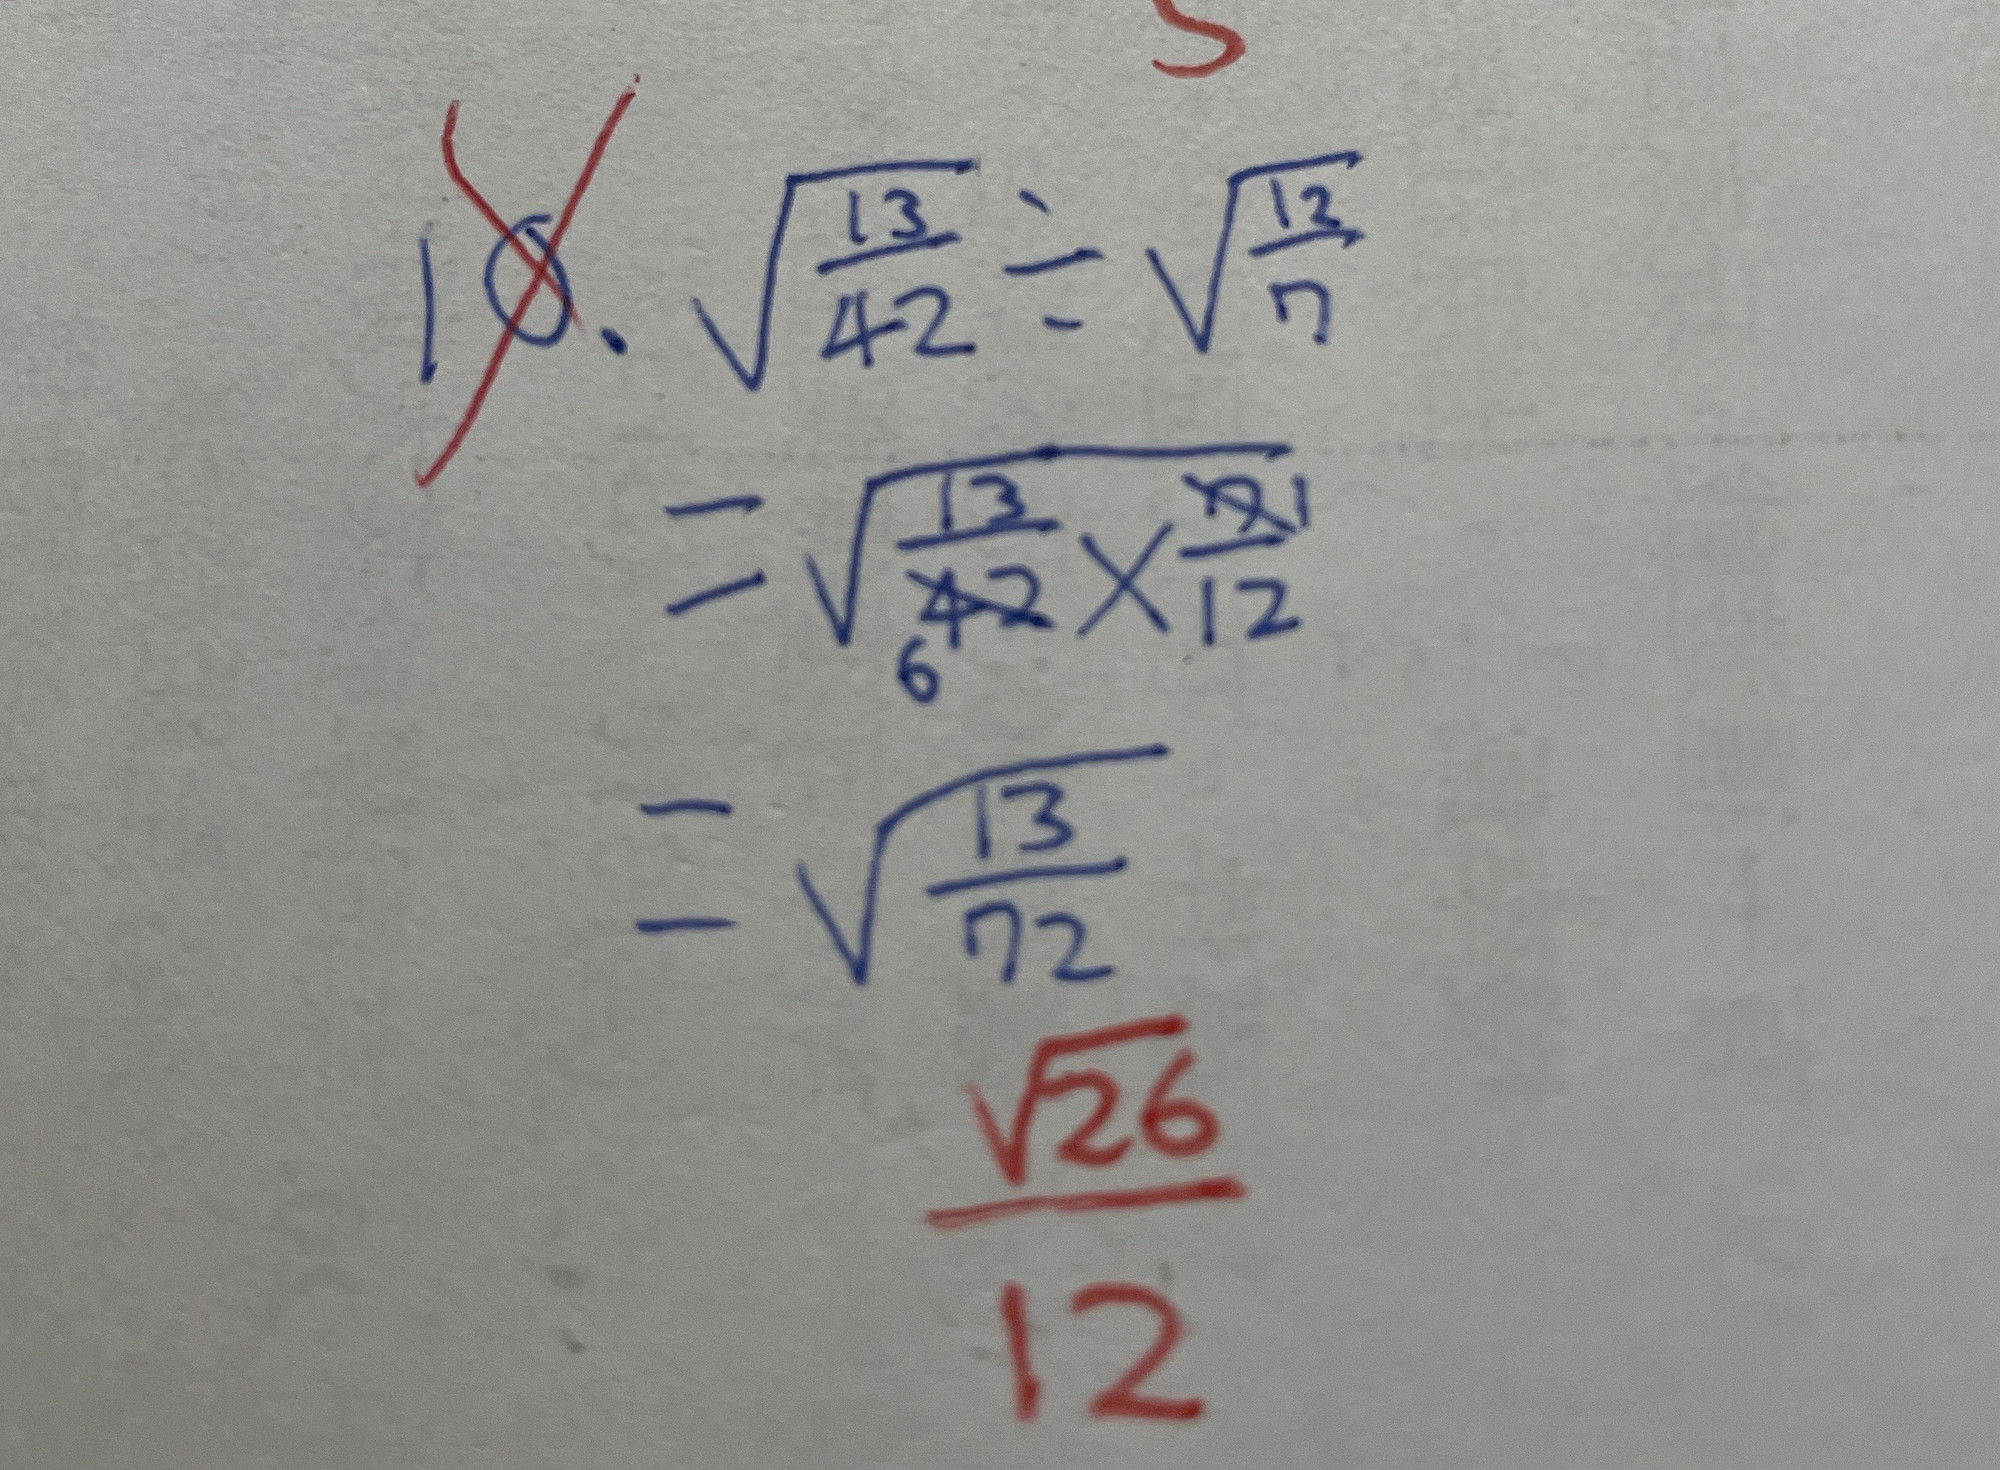 5
10. √(13/42) ÷ √(12/7)
= √(13/42 × 7/12) 6 1
= √(13/72)
√26/12